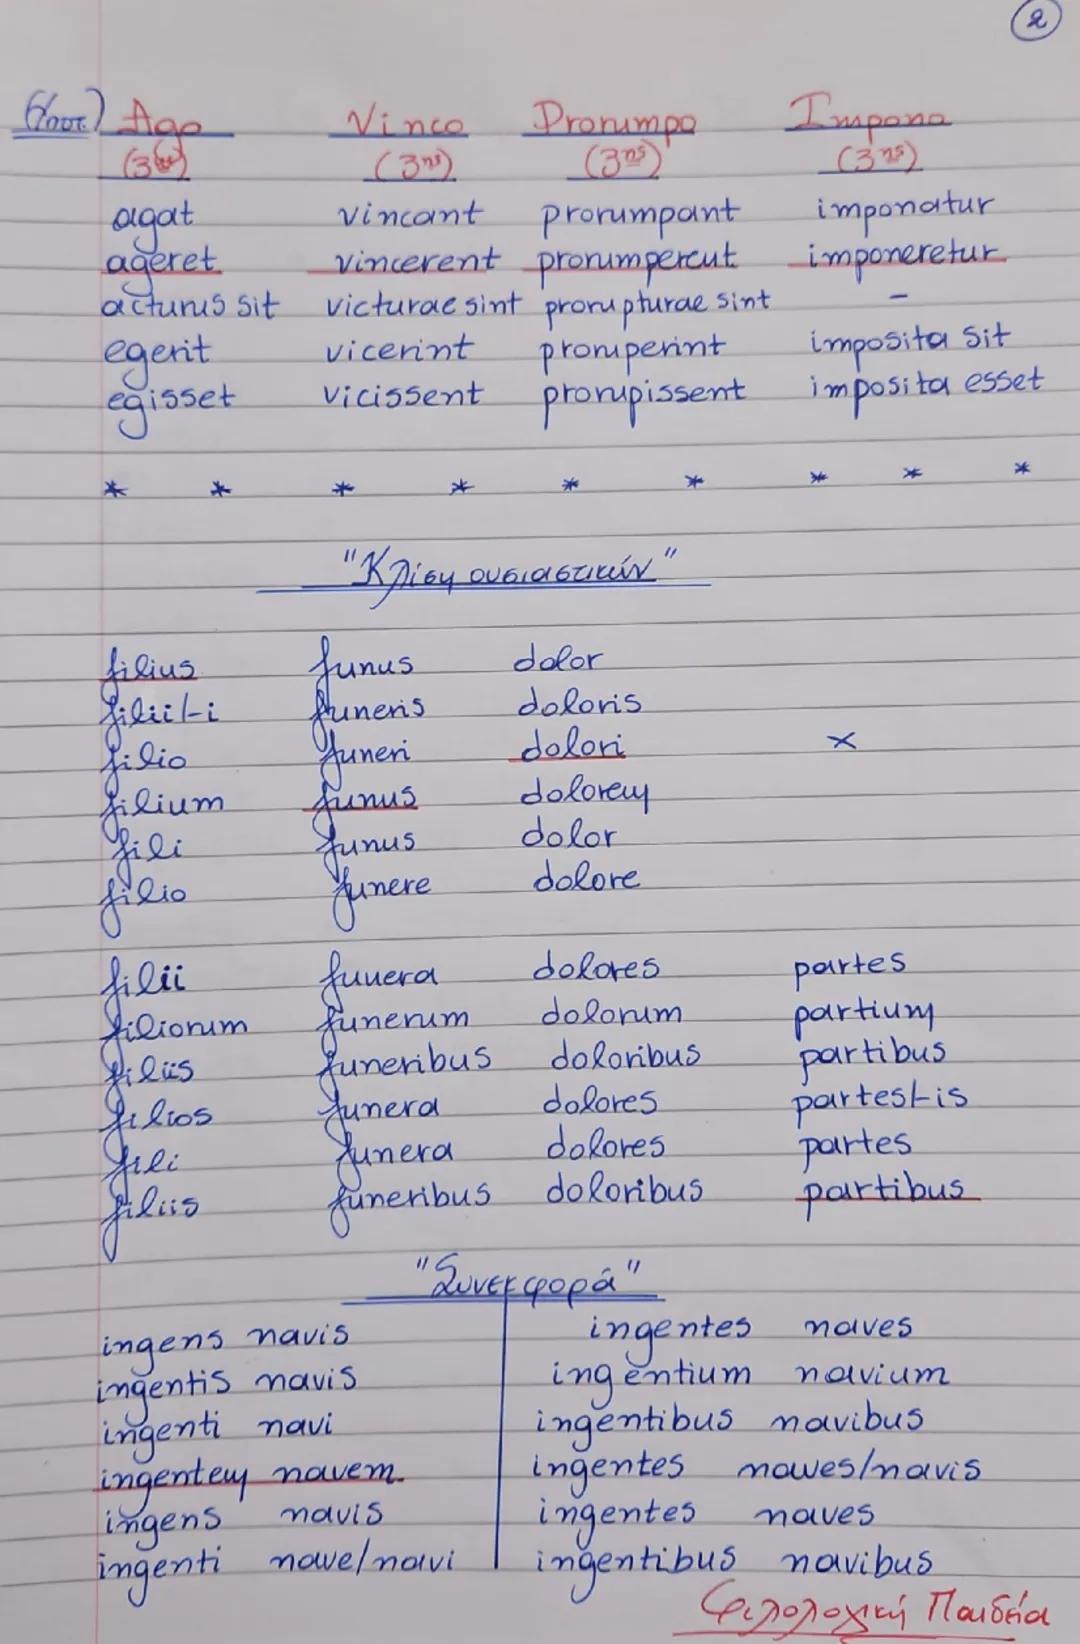 2
(Υποτ.) Ago Vinco Prorumpo Impono
(3ης) (3ης) (3ης) (3ης)
agat vincant prorumpant imponatur
ageret vincerent prorumperent imponeretur
acturus sit victurae sint prorupturae sint -
egerit vicerint proruperint imposita sit
egisset vicissent prorupissent imposita esset
* * * * * * * * *
"Κλίση ουσιαστικών"
filius funus dolor
filii/-i funeris doloris
filio funeri dolori x
filium funus dolorem
fili funus dolor
filio funere dolore
filii funera dolores partes
filiorum funerum dolorum partium
filiis funeribus doloribus partibus
filios funera dolores partes/-is
fili funera dolores partes
filiis funeribus doloribus partibus
"Συνεκφορά"
ingens navis ingentes naves
ingentis navis ingentium navium
ingenti navi ingentibus navibus
ingentem navem ingentes naves/navis
ingens navis ingentes naves
ingenti nave/navi ingentibus navibus
Φιλολογική Παιδεία